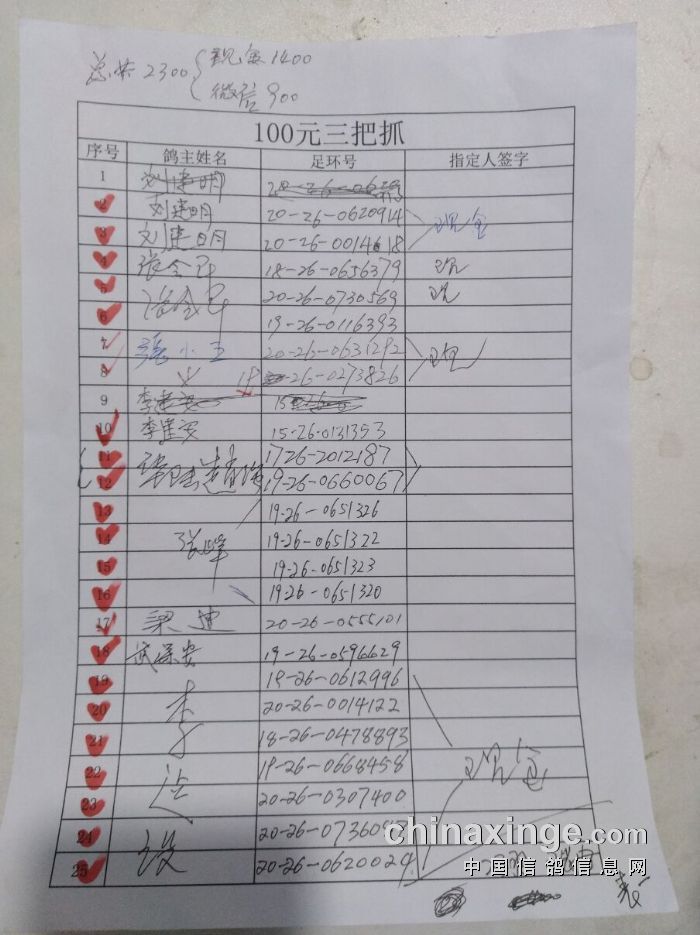 总共2300 现金1400
微信900
100元三把抓
序号 鸽主姓名 足环号 指定人签字
1 刘建明
2 刘建明 20-26-0620914 现金
3 刘建明 20-26-0014618
4 张全军 18-26-0656379 现
5 20-26-0730569 现
6 19-26-0116393
7 张小卫 20-26-0631292 现
8 18 26-0273826
9 李建安
10 李建安 15-26-0131353
11 1726-2012187
12 19-26-0660067
13 19-26-0651326
14 张峰 19-26-0651322
15 19-26-0651323
16 19-26-0651320
17 梁 20-26-0555101
18 武保贵 19-26-0596629
19 19-26-0612996
20 李 20-26-0014122
21 18-26-0478893
22 19-26-0668458 现金
23 20-26-0307400
24 20-26-07360
25 20-26-0620029
chinaxinge.com
中国信鸽信息网